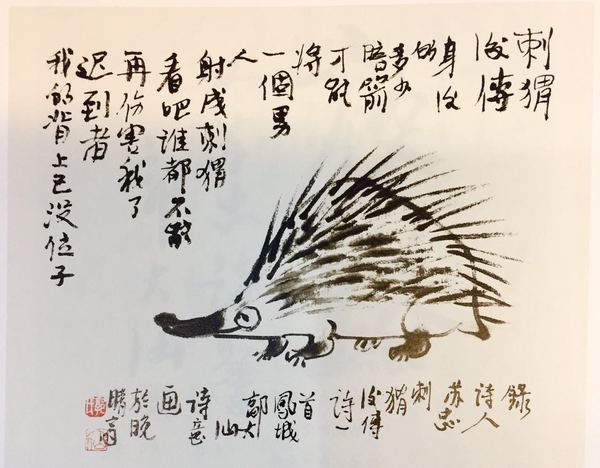 刺猬
後傳
身後
的
多少
暗箭
才能
將
一個男
人
射成刺猬
看吧谁都不能
再伤害我了
迟到者
我的背上已没位子
錄
詩人
苏忠
刺
猬
後傳
詩一
首
鳳城
郭大
仙
诗意
画
於晚